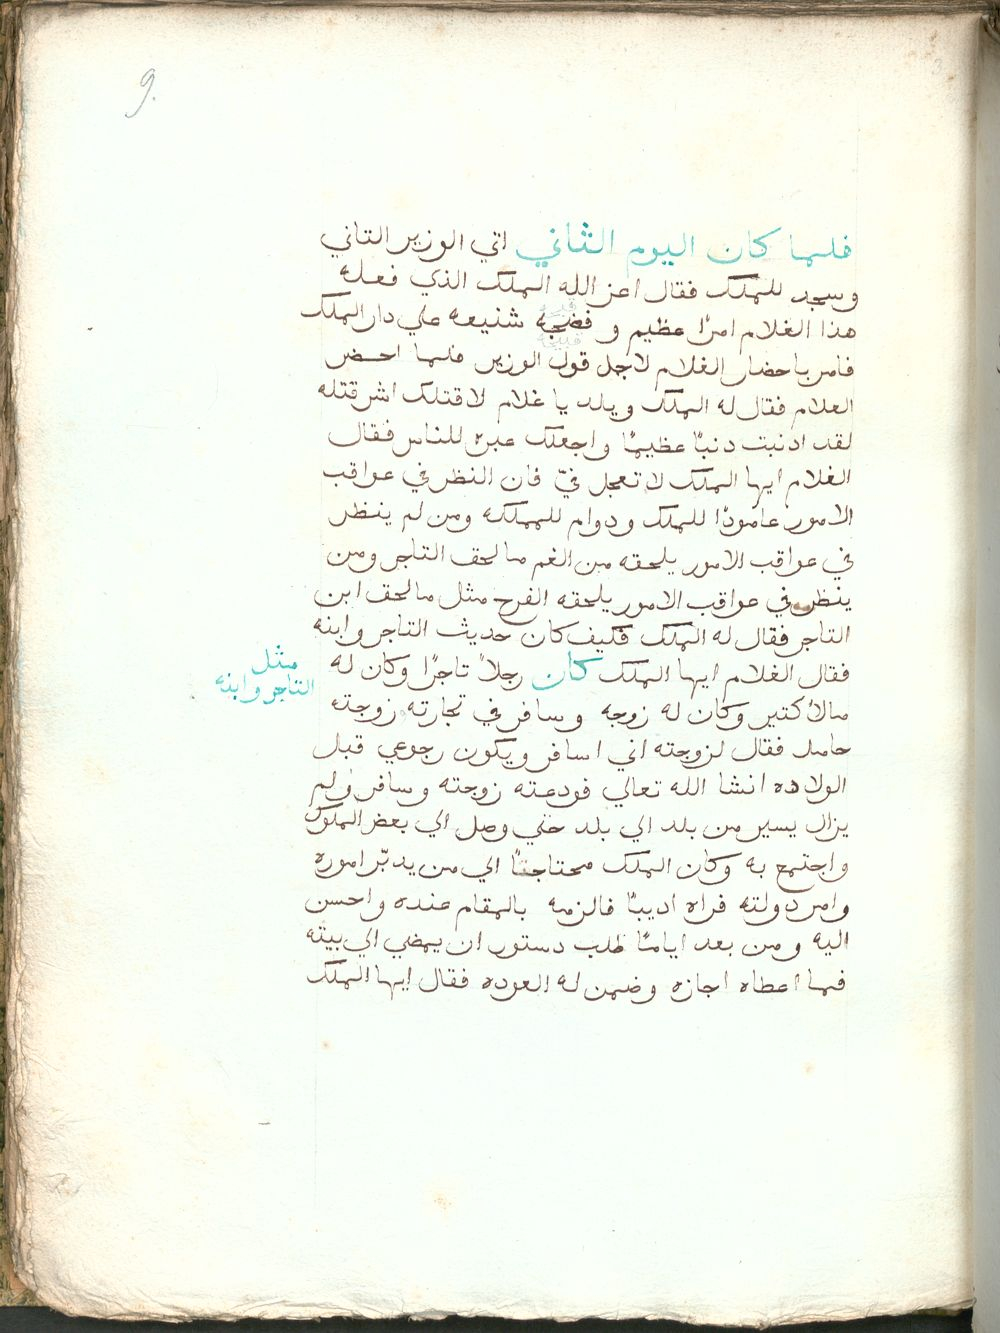 9.
فلما كان اليوم الثاني اتي الوزير التاني
وسجد للملك فقال اعز الله الملك الذي فعله
هذا الغلام امرًا عظيم و فضيحه شنيعه علي دار الملك
قبيحه
فامر باحضار الغلام لاجل قول الوزير فلما احضر
العلام فقال له الملك ويلد يا غلام لاقتلك اشر قتله
لقد ادنبت دنبًا عظيمًا واجعلك عبره للناس فقال
الغلام ايها الملك لا تعجل فيّ فان النظر في عواقب
الامور عامودًا للملك ودوام للمملكه ومن لم ينظر
في عواقب الامور يلحقه من الغم ما لحق التاجر ومن
ينظر في عواقب الامور يلحقه الفرح مثل ما لحق ابن
التاجر فقال له الملك فكيف كان حديث التاجر وابنه
فقال الغلام ايها الملك كان رجلاً تاجرًا وكان له
مثل
التاجر وابنه
مالاً كتير وكان له زوجه وسافر في تجارته زوجته
حامل فقال لزوجته اني اسافر ويكون رجوعي قبل
الولاده انشا الله تعالي فودعته زوجته وسافر ولم
يزال يسير من بلد الي بلد حتي وصل الي بعض الملوك
واجتمع به وكان الملك محتاجًا الي من يدبّر اموره
وامر دولته فراه اديبًا فالزمه بالمقام عنده واحسن
اليه ومن بعد ايامًا طلب دستور ان يمضي الي بيته
فما اعطاه اجازه وضمن له العوده فقال ايها الملك